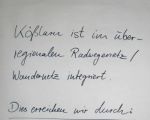 Kößlarn ist im über-
regionalen Radwegenetz /
Wandernetz integriert.
Dies erreichen wir durch: